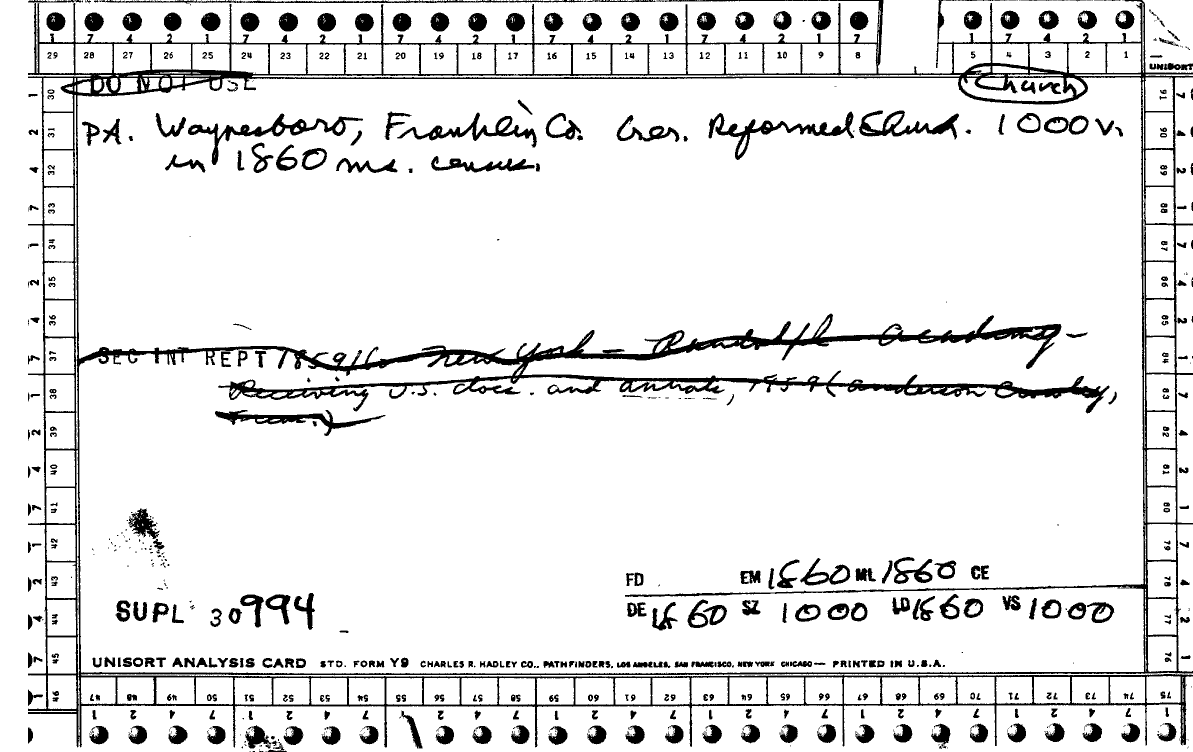 1 7 4 2 1 7 4 2 1 7 4 2 1 7 4 2 1 7 4 2 1 7 1 7 4 2 1
29 28 27 26 25 24 23 22 21 20 19 18 17 16 15 14 13 12 11 10 9 8 5 4 3 2 1
UNISORT
DO NOT USE
Church
PA. Waynesboro, Franklin Co. Ger. Reformed Church. 1000 v.
in 1860 ms. census.
SEC INT REPT 1859/60 New York — Randolph Academy —
Receiving U.S. docs. and annals, 1959 (Anderson Crowley,
FD EM 1860 ML 1860 CE
SUPL 30994
DE 1860 SZ 1000 LD 1860 VS 1000
UNISORT ANALYSIS CARD STD. FORM Y9 CHARLES R. HADLEY CO., PATHFINDERS, LOS ANGELES, SAN FRANCISCO, NEW YORK CHICAGO — PRINTED IN U.S.A.
47 48 49 50 51 52 53 54 55 56 57 58 59 60 61 62 63 64 65 66 67 68 69 70 71 72 73 74 75
1 2 4 7 1 2 4 7 2 4 7 1 2 4 7 1 2 4 7 1 2 4 7 1 2 4 7 1